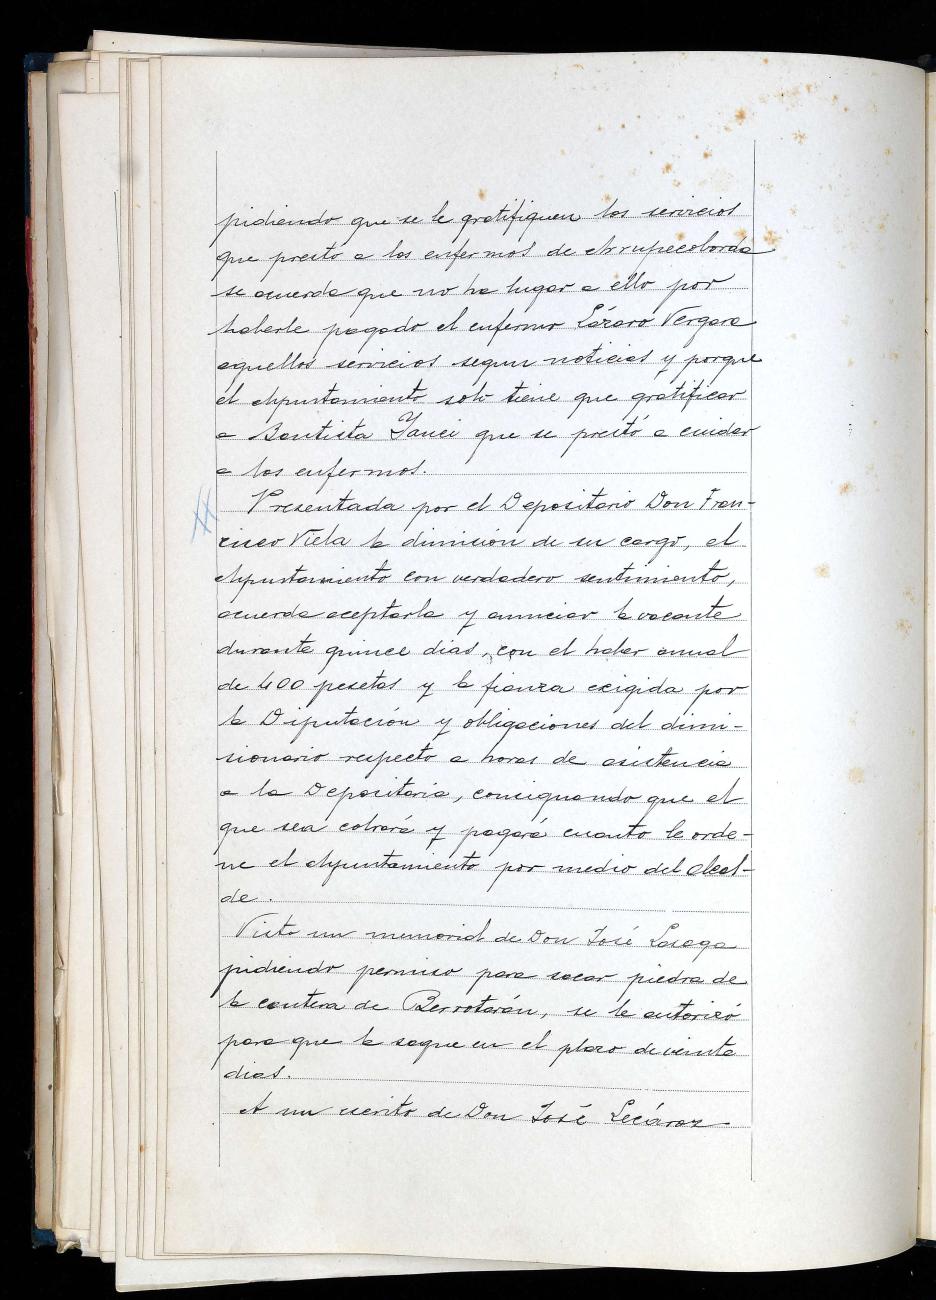 pidiendo que se le gratifiquen los servicios
que prestó a los enfermos de Arrupecoborda
se acuerda que no ha lugar a ello por
haberle pagado el enfermo Lázaro Vergara
aquellos servicios segun noticias y porque
el Ayuntamiento solo tiene que gratificar
a Bautista Yanci que se prestó a cuidar
a los enfermos.
Presentada por el Depositario Don Fran-
cisco Viela la dimisión de su cargo, el
Ayuntamiento con verdadero sentimiento,
acuerda aceptarla y anunciar la vacante
durante quince dias, con el haber anual
de 400 pesetas y la fianza exigida por
la Diputación y obligaciones del dimi-
sionario respecto a horas de asistencia
a la Depositaria, consignando que el
que sea cobrará y pagará cuanto le orde-
ne el Ayuntamiento por medio del Alcal-
de.
Visto un memorial de Don José Lasaga
pidiendo permiso para sacar piedra de
la cantera de Berrotarán, se le autorizó
para que la saque en el plazo de veinte
dias.
A un escrito de Don José Lecároz